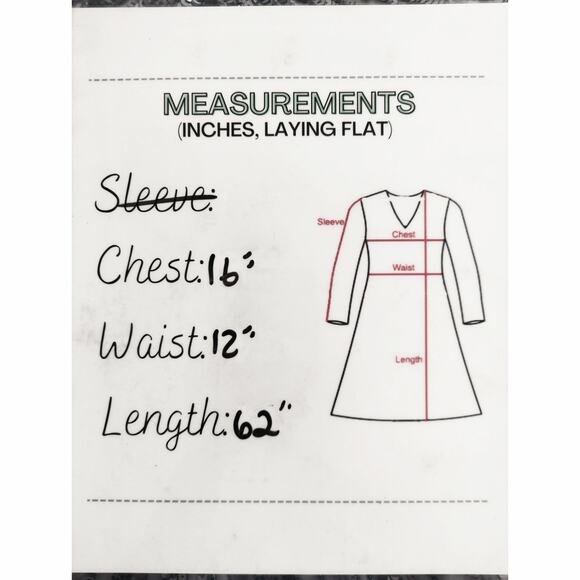 MEASUREMENTS
(INCHES, LAYING FLAT)
Sleeve:
Chest: 16"
Waist: 12"
Length: 62"
Sleeve
Chest
Waist
Length